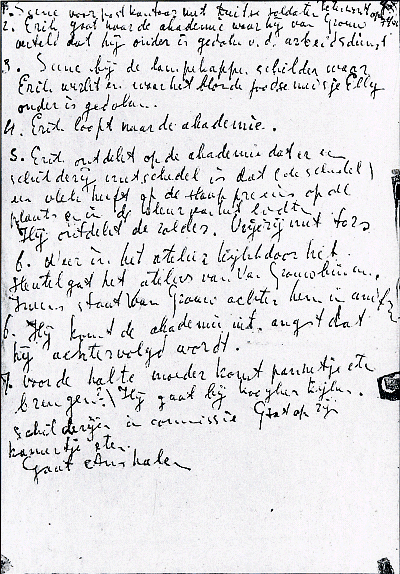 1. Scene voor postkantoor met Duitse soldaten
2. Erik gaat naar de akademie waar hij van Grouw
vertelt dat hij onder is gedoken v.d. arbeidsdienst
3. Scene bij de lampekappen schilder waar
Erik werkt en waar het blonde joodse meisje Elly
onder is gedoken.
4. Erik loopt naar de akademie.
5. Erik ontdekt op de akademie dat er een
schilderij met schedel is dat (de schedel)
een vlek heeft op de
plaats en in de kleur van het
Hij ontdekt de zolder. met tors
6. Weer in het atelier kijkt door het
sleutelgat het atelier van Van Grouw binnen.
Ineens staat Van Grouw achter hem in unif.
6. Hij komt de akademie uit. angst dat
hij achtervolgd wordt.
7. voor de halte moeder komt pannetje eten
brengen. Hij gaat bij kijken.
schilderijen in commissie Gaat op zijn
kamertje eten.
Gaat halen